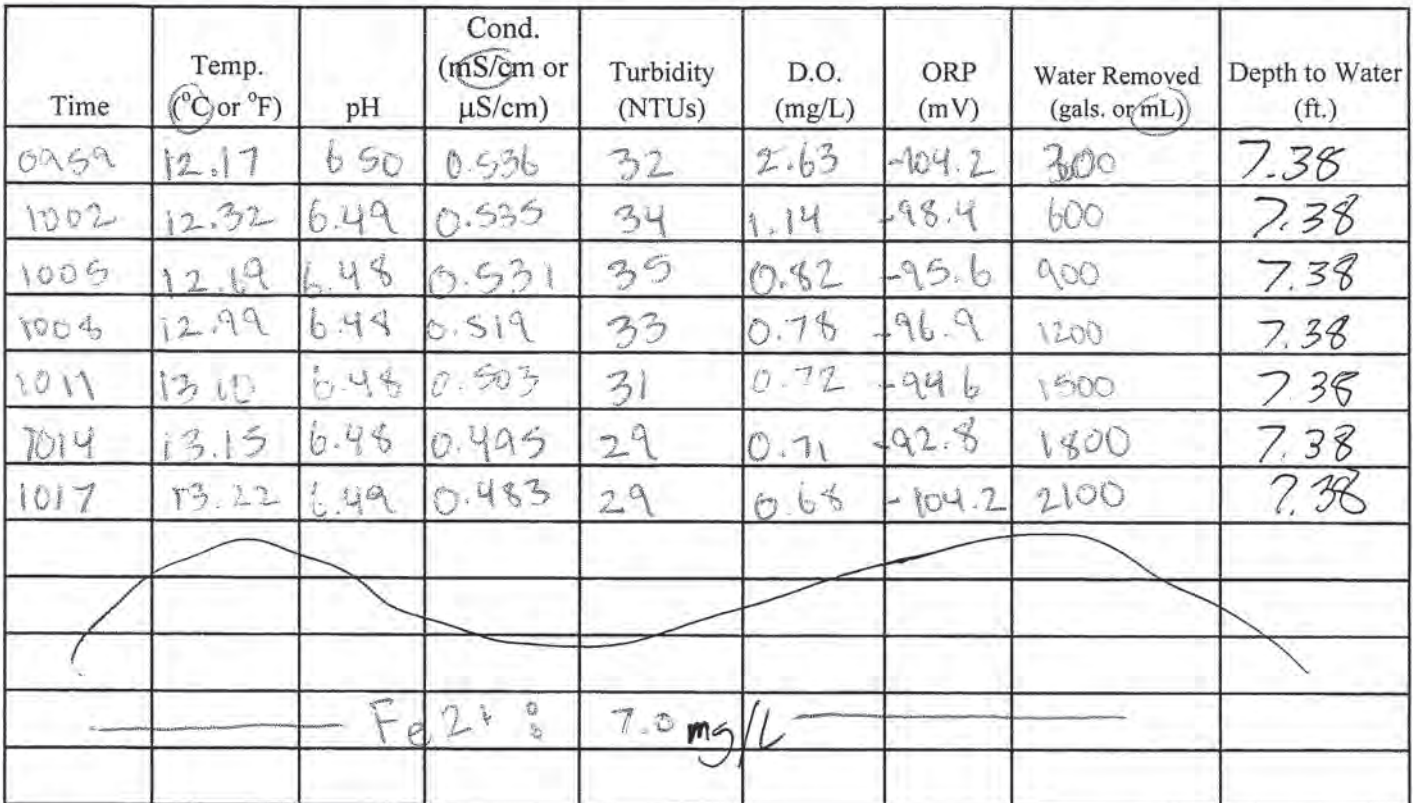 Time Temp. (°C or °F) pH Cond. (mS/cm or µS/cm) Turbidity (NTUs) D.O. (mg/L) ORP (mV) Water Removed (gals. or mL) Depth to Water (ft.)
0959 12.17 6 50 0.536 32 2.63 -104.2 300 7.38
1002 12.32 6.49 0.535 34 1.14 -98.4 600 7.38
1005 12.69 6.48 0.531 35 0.82 -95.6 900 7.38
1008 12.99 6.48 0.519 33 0.78 -96.9 1200 7.38
1011 13.10 6.48 0.503 31 0.72 -94.6 1500 7.38
1014 13.15 6.48 0.495 29 0.71 -92.8 1800 7.38
1017 13.22 6.49 0.483 29 0.68 -104.2 2100 7.38
Fe2+: 7.0 mg/L